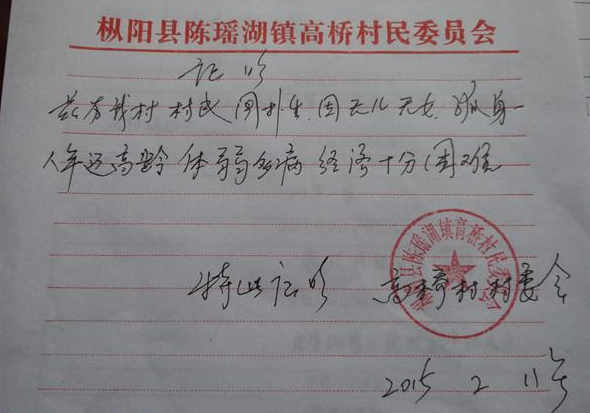 枞阳县陈瑶湖镇高桥村民委员会
证明
兹有我村村民周朴生,因无儿无女,孤身一
人年迈高龄体弱多病经济十分困难
特此证明 高桥村村委会
枞阳县陈瑶湖镇高桥村民委员会
2015 2 11号